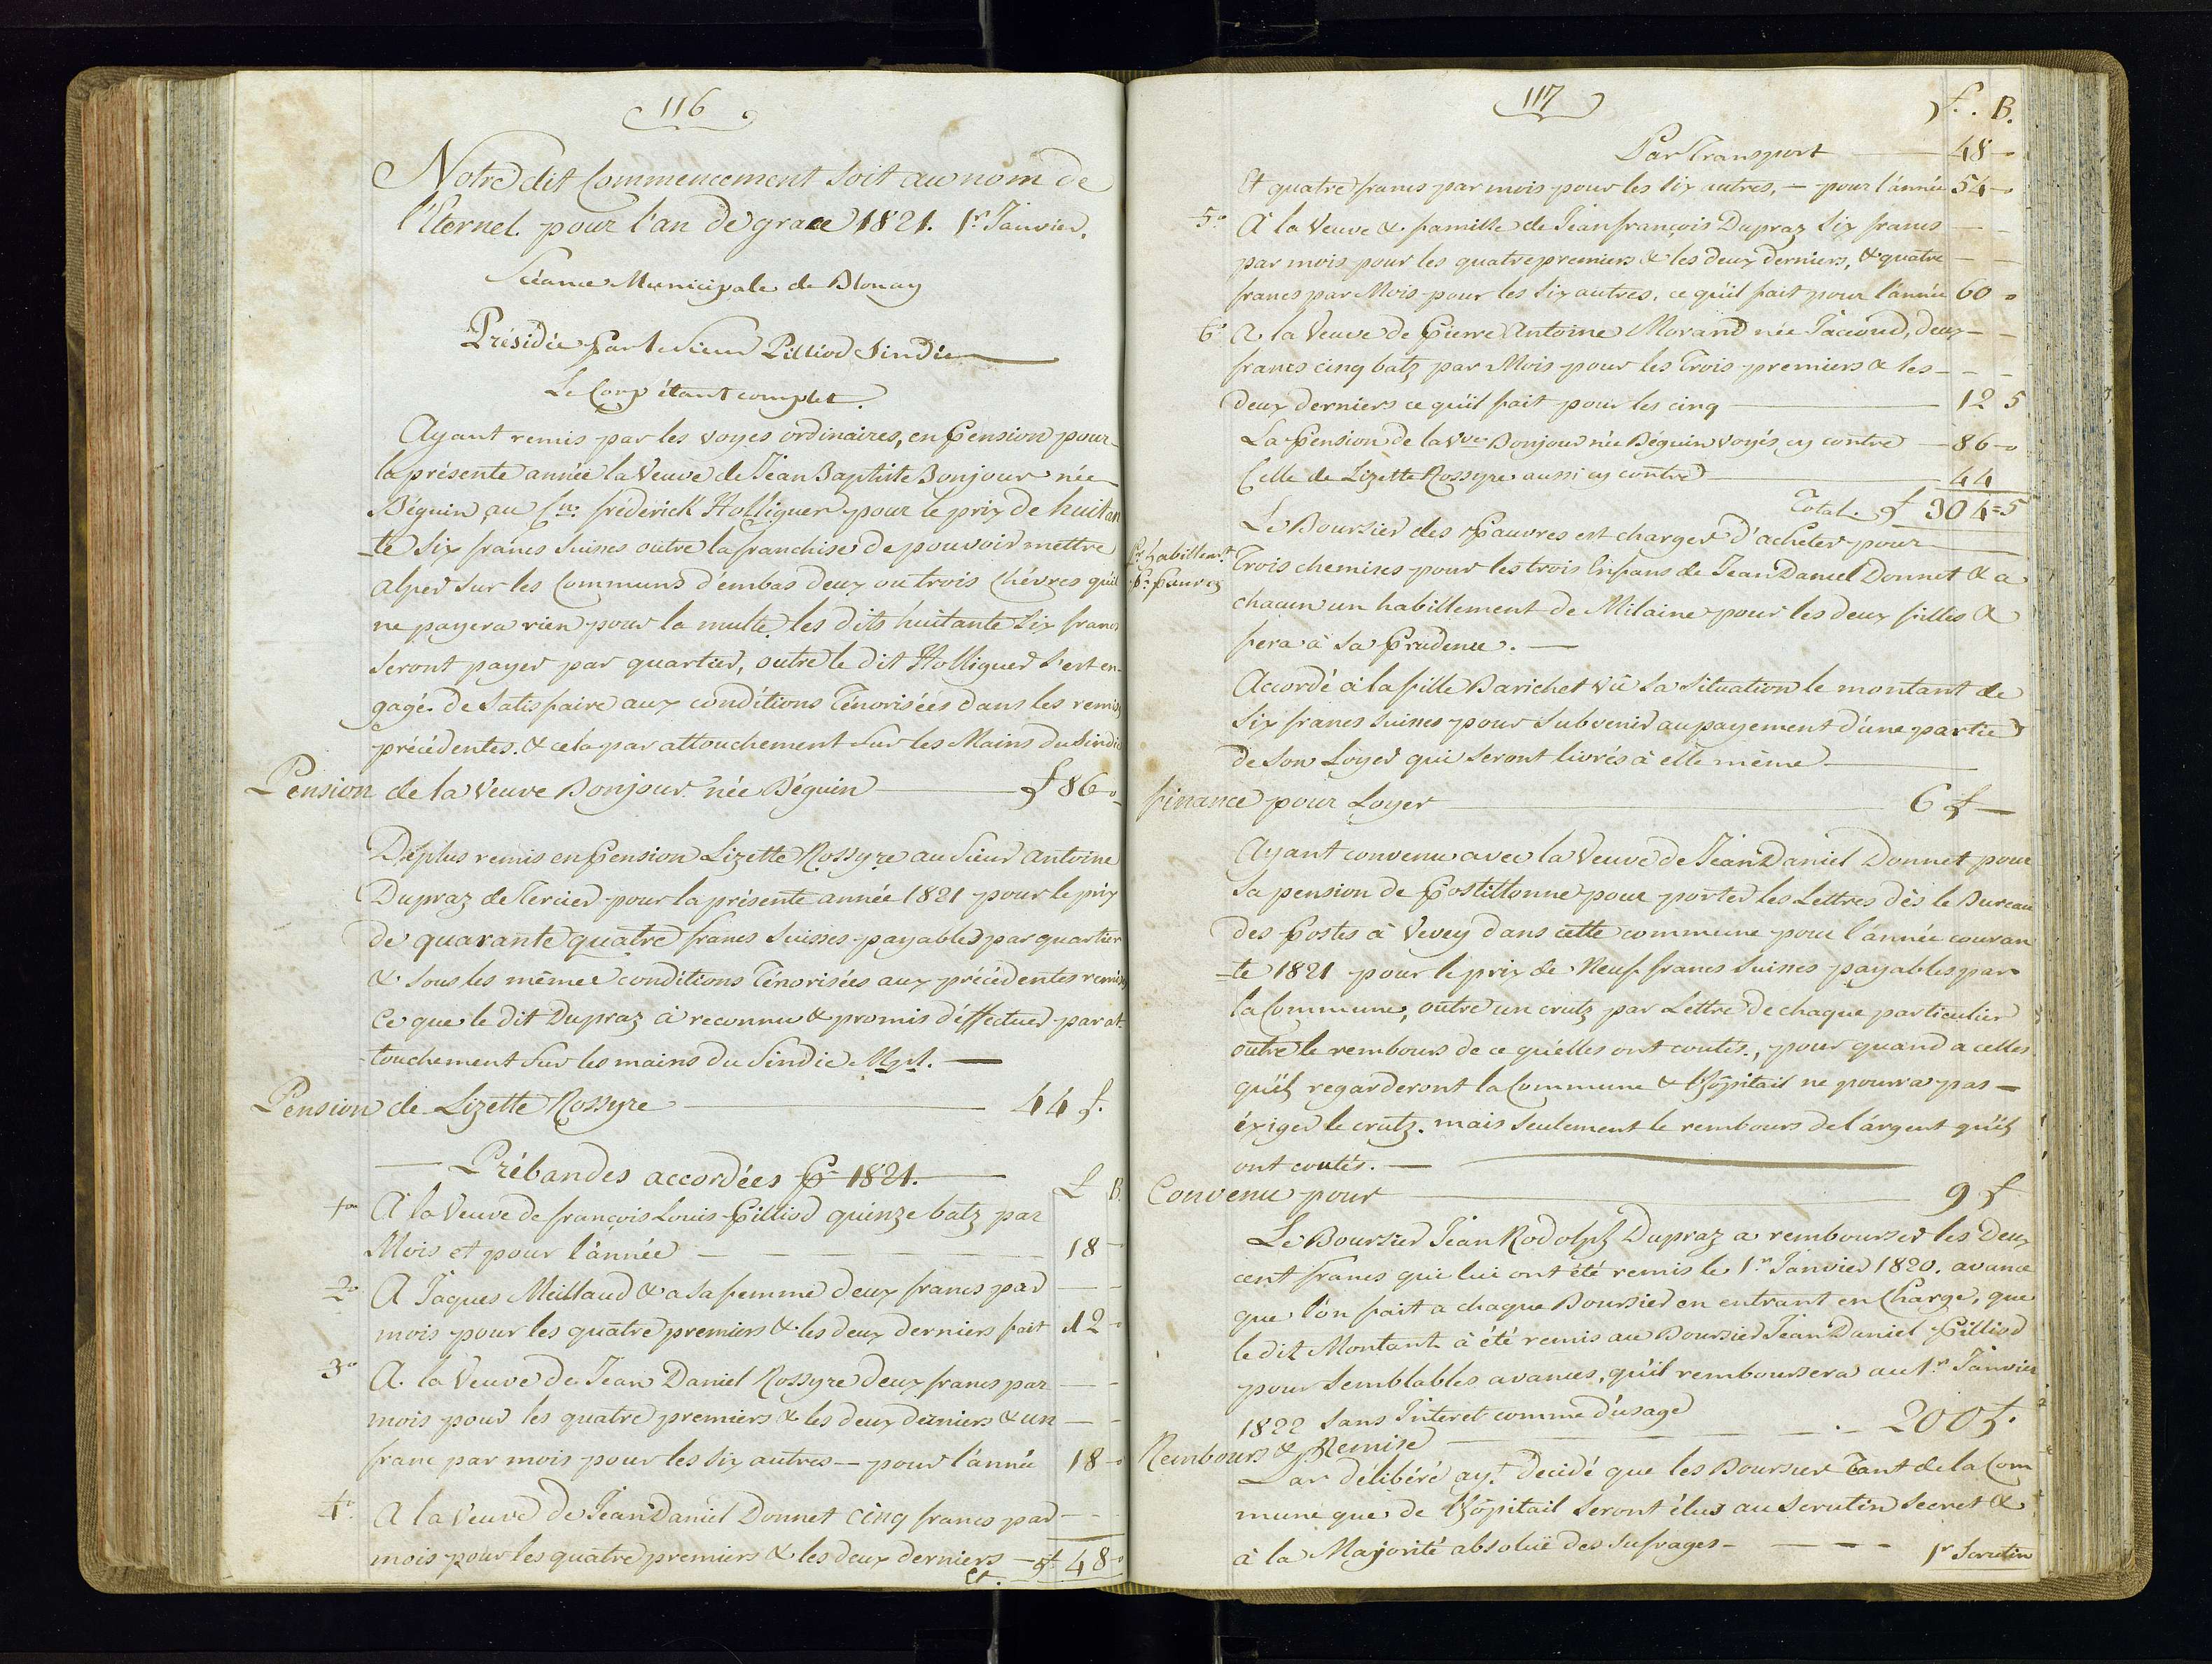 116
Notre dit Commencement soit au nom de
l'Eternel. pour l'an de grace 1821. 1r. Janvier.
Séance Municipale de Blonay
Présidée par le Sieur Pilliod Sindic
Le Corp étant complet.
Ayant remis par les voyes ordinaires, en Pension pour
la présente année la Veuve de Jean Baptiste Bonjour née
Béguin, au Cn. fréderick Holliguer pour le prix de huitan
te six francs suisses outre la franchise de pouvoir mettre
alper sur les Communs d'embas deux ou trois Chévres qu'il
ne payera rien pour la multe, les dits huitante six francs
seront payer par quartier, outre le dit Holliguer s'est en-
gagé de satisfaire aux conditions Ténorisées dans les remises
précédentes. & cela par attouchement sur les Mains du Sindic
Pension de la Veuve Bonjour née Béguin f 86 -
Déplus remis en Pension Lizette Rossyre au Sieur Antoine
Dupraz de Tercier pour la présente année 1821 pour le prix
de quarante quatre francs suisses payables par quartier
& sous les mêmes conditions Ténorisées aux précédentes remises
Ce que le dit Dupraz à reconnu & promis d'éffectuer par at-
-touchement sur les mains du Sindic Mpl. —
Pension de Lizette Rossyre 44 f.
— Prébandes accordées pr 1821. —
£ B.
1o A la Veuve de françois Louis Pilliod quinze batz par
Mois et pour l'année — 18 -
2o A Jaques Meillaud & a sa femme deux francs par
mois pour les quatre premiers & les deux derniers fait 12 -
3o A la Veuve de Jean Daniel Rossyre deux francs par
mois pour les quatre premiers & les deux derniers & un
franc par mois pour les six autres — pour l'année 18 -
4o A la Veuve de Jean Daniel Donnet cinq francs par
mois pour les quatre premiers & les deux derniers — f 48 -
Et.
117
f. B.
Par Transport 48 -
Et quatre francs par mois pour les six autres, — pour l'année 54 -
5o A la Veuve & famille de Jean françois Dupraz six francs
par mois pour les quatre premiers & les deux derniers, & quatre
francs par Mois pour les six autres, ce qu'il fait pour l'année 60 -
6o A la Veuve de Pierre Antoine Morand née Jaccoud, deux
francs cinq batz par Mois pour les Trois premiers & les
deux derniers ce qu'il fait pour les cinq 12 5
La Pension de la Vve Bonjour née Béguin voyés cy contre — 86 -
Celle de Lizette Rossyre aussi cy contre 44
Total. f 304=5
Le Boursier des Pauvres est charger d'acheter pour
Pr. habillemt. pr. pauvres
Trois chemises pour les trois Enfans de Jean Daniel Donnet & a
chacun un habillement de Milaine pour les deux filles &
fera à sa Prudence. —
Accordé à la fille Barichet vû sa situation le montant de
six francs suisses pour subvenir au payement d'une partie
de son Loyer qui seront livrés à elle même
finance pour Loyer 6 f —
Ayant convenu avec la Veuve de Jean Daniel Donnet pour
sa pension de Postillonne pour porter les Lettres dès le Bureau
des Postes à Vevey dans cette commune pour l'année couran
-te 1821 pour le prix de Neuf francs suisses payables par
la Commune, outre un crutz par Lettre de chaque particulier
outre le rembours de ce qu'elles ont coutés, pour quand a celles
qu'il regarderont la Commune & l'hôpitail ne pourra pas —
éxiger le crutz. mais seulement le rembours de l'argent qu'ils
ont coutés. —
Convenu pour 9 f
Le Boursier Jean Rodolph Dupraz a rembourser les Deux
cent francs qui lui ont été remis le 1r. Janvier 1820. avance
que l'on fait a chaque Boursier en entrant en Charge, que
le dit Montant à été remis au Boursier Jean Daniel Pilliod
pour semblables avances, qu'il remboursera au 1r. Janvier
1822 sans Interet comme d'usage
Rembours & Remise — 200 f.
Par délibéré ayt. decidé que les Boursier Tant de la Com
mune que de l'hôpitail seront élus au scrutin secret &
à la Majorité absoluë des sufrages — 1r Scrutin